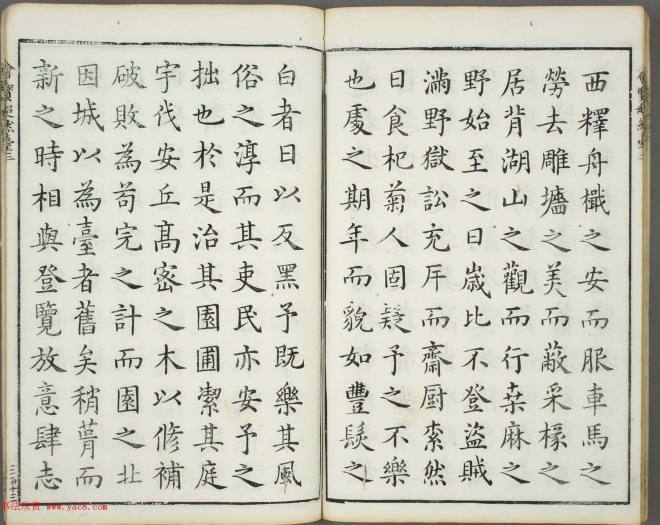 西釋舟檝之安而服車馬之
勞去雕墻之美而蔽采椽之
居背湖山之觀而行桒麻之
野始至之日嵗比不登盜賊
滿野獄訟充斥而齋厨索然
日食杞菊人固疑予之不樂
也處之期年而貌加豐髮之
白者日以反黑予既樂其風
俗之淳而其吏民亦安予之
拙也於是治其園圃潔其庭
宇伐安丘髙密之木以修補
破敗為苟完之計而園之北
因城以為臺者舊矣稍葺而
新之時相與登覽放意肆志
书法欣赏 www.yac8.com